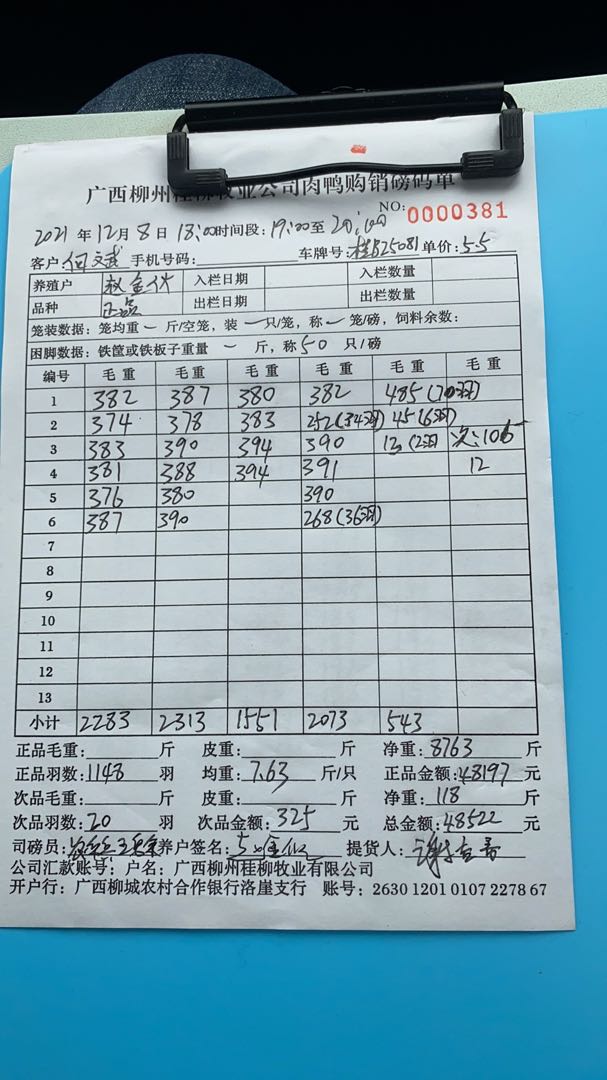 广西柳州桂柳牧业公司肉鸭购销磅码单
NO: 0000381
2021 年 12 月 8 日 18:00时间段: 19:00至 20:00
客户: 何文武 手机号码: 车牌号: 桂B25081 单价: 5.5
养殖户 赵金 入栏日期 入栏数量
品种 正品 出栏日期 出栏数量
笼装数据: 笼均重 — 斤/空笼, 装 — 只/笼, 称 — 笼/磅, 饲料余数:
困脚数据: 铁筐或铁板子重量 — 斤, 称 50 只/磅
编号 毛重 毛重 毛重 毛重 毛重 毛重
1 382 387 380 382 485(70羽)
2 374 378 383 252(34羽) 45(6羽)
3 383 390 394 390 13(2羽) 次: 106
4 381 388 394 391 12
5 376 380 390
6 387 390 268(36羽)
7
8
9
10
11
12
13
小计 2283 2313 1551 2073 543
正品毛重: 斤 皮重: 斤 净重: 8763 斤
正品羽数: 1148 羽 均重: 7.63 斤/只 正品金额: 48197 元
次品毛重: 斤 皮重: 斤 净重: 118 斤
次品羽数: 20 羽 次品金额: 325 元 总金额: 48522 元
司磅员: 养户签名: 提货人:
公司汇款账号: 户名: 广西柳州桂柳牧业有限公司
开户行: 广西柳城农村合作银行洛崖支行 账号: 2630 1201 0107 2278 67